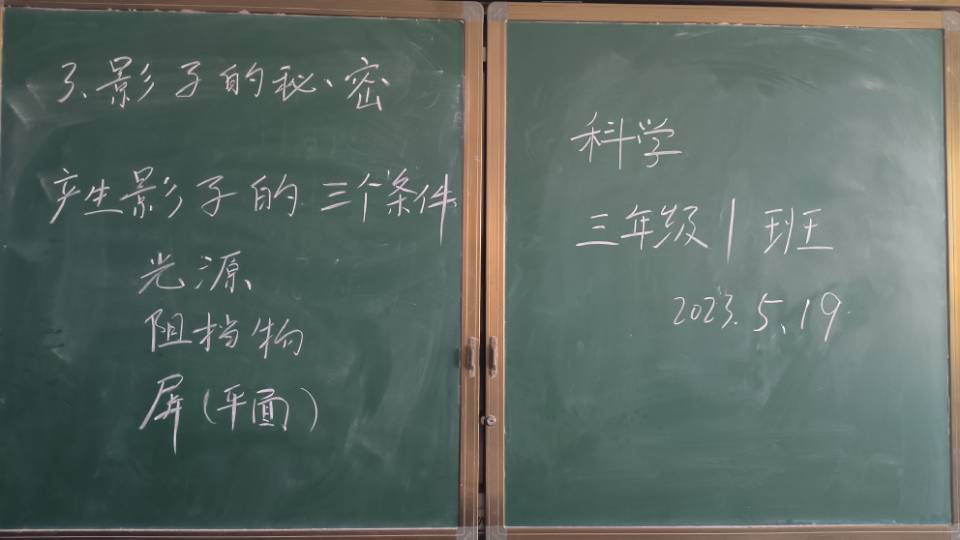 3、影子的秘密
产生影子的三个条件
光源
阻挡物
屏(平面)
科学
三年级1班
2023.5.19